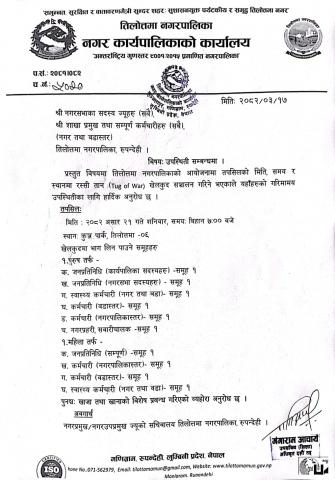 "सम्वृद्ध, सुरक्षित र वातावरणमैत्री सुन्दर शहरः सुशासनयुक्त पर्यटकीय र समृद्ध तिलोत्तमा नगर"
तिलोत्तमा नगरपालिका
नगर कार्यपालिकाको कार्यालय
"अन्तर्राष्ट्रिय गुणस्तर ९००१:२०१५ प्रमाणित नगरपालिका"
प.सं: २०८१/०८२
च .नं.:
मितिः २०८२/०३/१७
श्री नगरसभाका सदस्य ज्यूहरु (सबै)
श्री शाखा प्रमुख तथा सम्पूर्ण कर्मचारीहरु (सबै)
(नगर तथा वडास्तर)
तिलोत्तमा नगरपालिका, रुपन्देही ।
बिषयः उपस्थिती सम्बन्धमा ।
प्रस्तुत बिषयमा तिलोत्तमा नगरपालिकाको आयोजनामा तपसिलको मिति, समय र
स्थानमा रस्सी तान (Tug of War) खेलकुद सञ्चालन गरिने भएकाले यहाँहरुको गरिमामय
उपस्थितीका लागि हार्दिक अनुरोध छ ।
तपसिलः
मिति : २०८२ असार २१ गते शनिवार, समयः बिहान ७:०० बजे
स्थानः कुञ्ज पार्क, तिलोत्तमा -०६
खेलकुदमा भाग लिन पाउने समूहहरु
१.पुरुष तर्फ -
क. जनप्रतिनिधि (कार्यपालिका सदस्यहरु) -समूह १
ख. जनप्रतिनिधि (नगरसभा सदस्यहरु) - समूह १
ग. स्वास्थ्य कर्मचारी (नगर तथा वडा)- समूह १
घ. कर्मचारी (वडास्तर)- समूह १
ङ. कर्मचारी (नगरपालिकास्तर)- समूह १
च. नगरप्रहरी, सवारीचालक -समूह १
१.महिला तर्फ -
क. जनप्रतिनिधि (सम्पूर्ण) -समूह १
ख. कर्मचारी (नगरपालिकास्तर)- समूह १
ग. कर्मचारी (वडास्तर)- समूह १
घ. स्वास्थ्य कर्मचारी (नगर तथा वडा)- समूह १
पुनश्चः खाजा तथा खानाको बिशेष प्रबन्ध गरिएको व्यहोरा अनुरोध छ ।
बोधार्थ
नगरप्रमुख/नगरउपप्रमुख ज्यूको सचिवालय तिलोत्तमा नगरपालिका, रुपन्देही ।
गंगाराम आचार्य
गणिग्राम, रुपन्देही, लुम्बिनी प्रदेश, नेपाल
Phone No.:071-562979, Email: Website: www.tilottamamun.gov.np
Manigram, Rupandehi